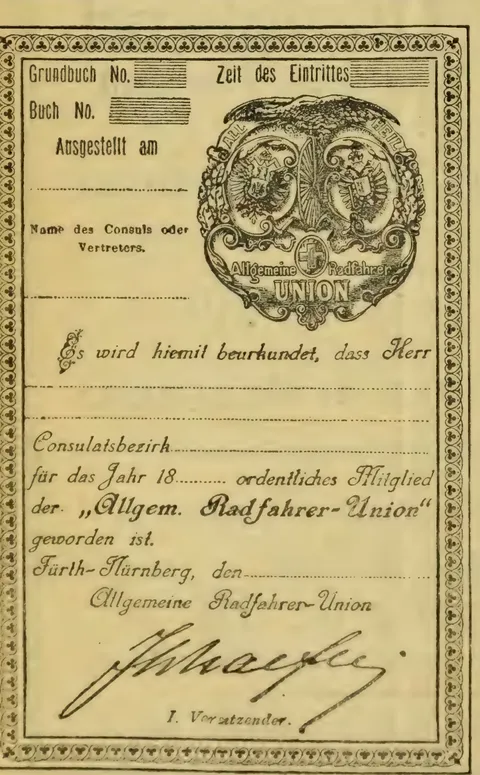 Grundbuch No.
Zeit des Eintrittes
Buch No.
Ausgestellt am
Name des Consuls oder
Vertreters.
ALL HEIL
Allgemeine Radfahrer
UNION
Es wird hiemit beurkundet, dass Herr
Consulatsbezirk
für das Jahr 18 ordentliches Mitglied
der „Allgem. Radfahrer-Union“
geworden ist.
Fürth-Nürnberg, den
Allgemeine Radfahrer-Union
I. Vorsitzender.